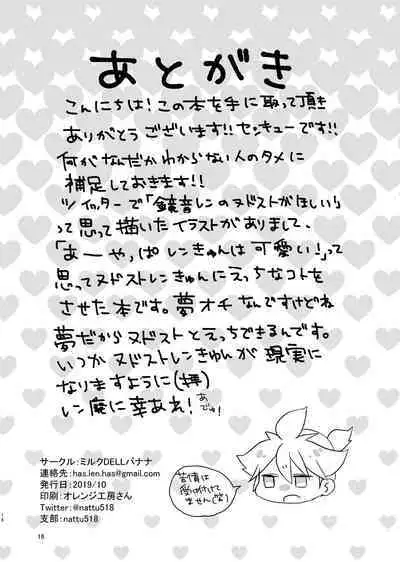 あとがき
こんにちは!この本を手に取って頂き
ありがとうございます!!センキューです!!
何がなんだかわからない人のタメに
補足しておきます!!
ツイッターで「鏡音レンのヌドストがほしい」
って思って描いたイラストがありまして、
「あーやっぱレンきゅんは可愛い!」って
思ってヌドストレンきゅんにえっちなコトを
させた本です。夢オチなんですけどね
夢だからヌドストとえっちできるんです。
いつかヌドストレンきゅんが現実に
なりますように(拝)
レン廃に幸あれ!
あでゅ!
苦情は
受け付けて
ません(笑)
サークル:ミルクDELLバナナ
連絡先:has.len.has@gmail.com
発行日:2019/10
印刷:オレンジ工房さん
Twitter:@nattu518
支部:nattu518
18